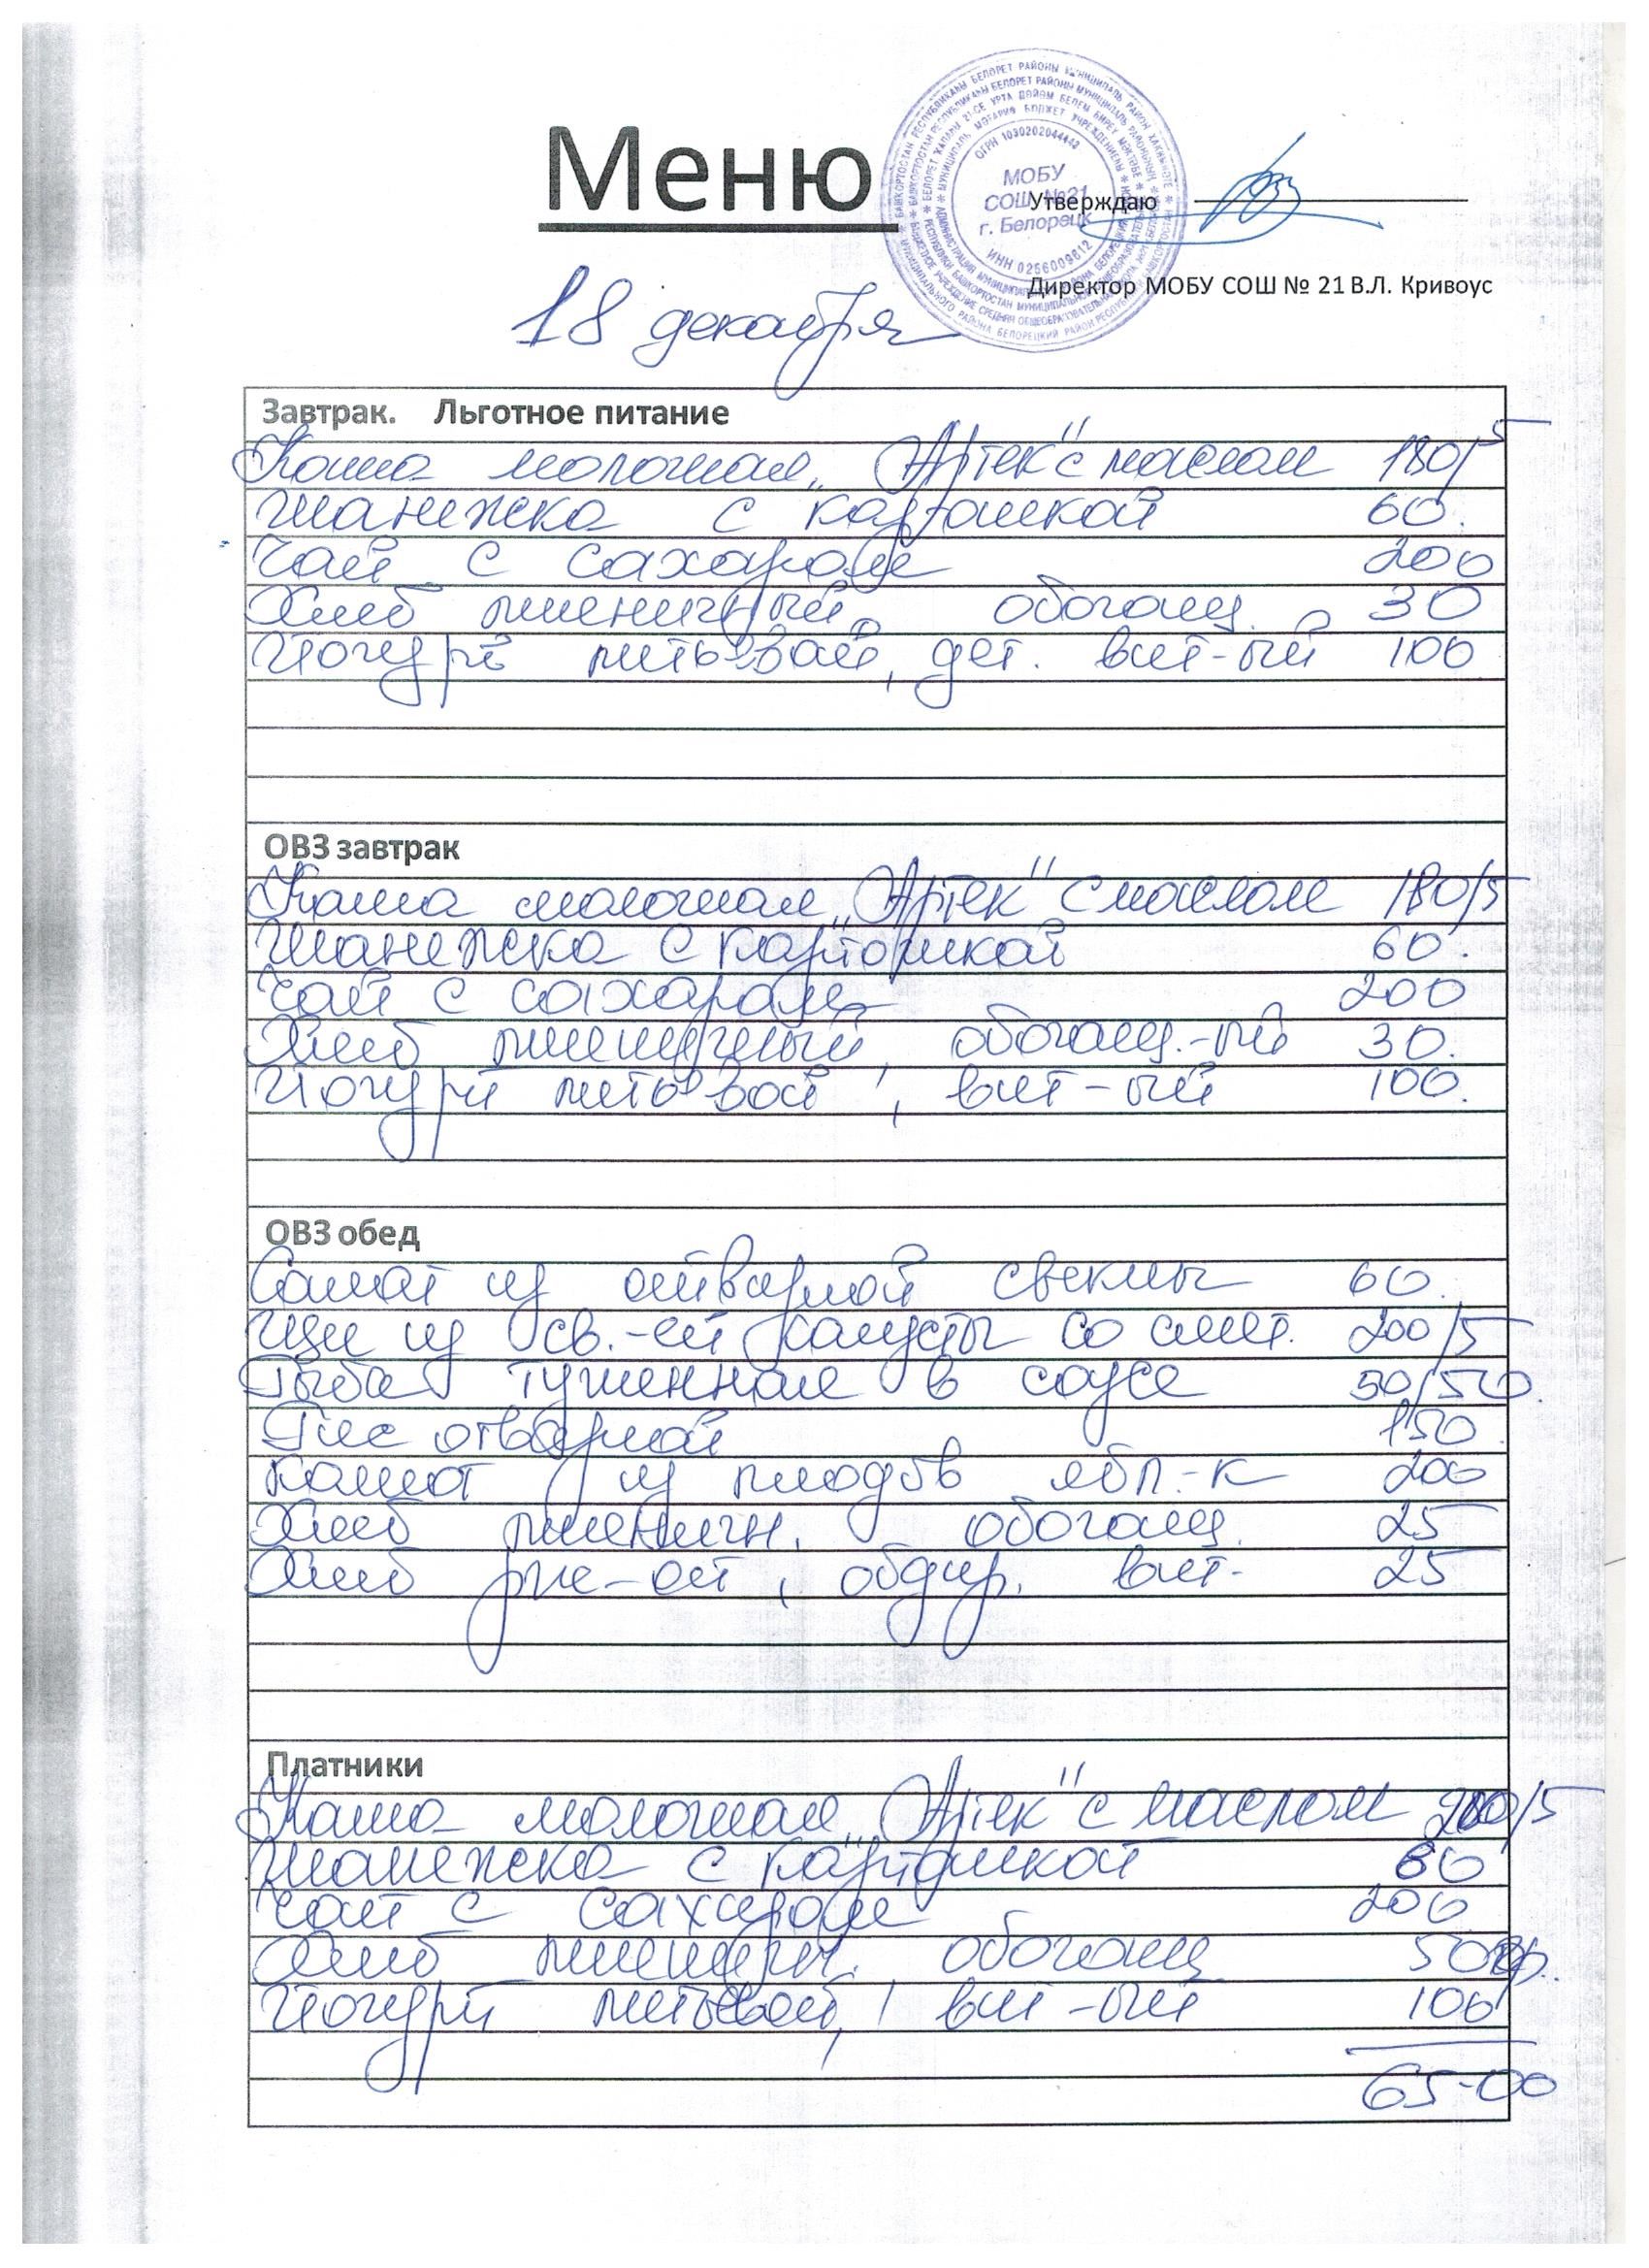 Меню
МОБУ
СОШ №21
г. Белорецк
ОГРН 1030202044443
ИНН 0256009812
Утверждаю
Директор МОБУ СОШ № 21 В.Л. Кривоус
18 декабря
Завтрак. Льготное питание
Каша молочная „Артек" с маслом 180/5
Шанежка с картошкой 60.
Чай с сахаром 200
Хлеб пшеничный, обогащ. 30
Йогурт питьевой, дет. вит-ый 100
ОВЗ завтрак
Каша молочная „Артек" с маслом 180/5
Шанежка с картошкой 60.
Чай с сахаром 200
Хлеб пшеничный, обогащ.-ый 30.
Йогурт питьевой, вит-ый 100.
ОВЗ обед
Салат из отварной свеклы 60.
Щи из св.-ей капусты со смет. 200/5
Рыба тушенная в соусе 50/50.
Рис отварной 150
Компот из плодов ябл.-к 200
Хлеб пшеничн. обогащ. 25
Хлеб рж-ой, обдир. вит- 25
Платники
Каша молочная „Артек" с маслом 200/5
Шанежка с картошкой 60
Чай с сахаром 200
Хлеб пшеничн. обогащ 50
Йогурт питьевой, вит-ый 100
65-00